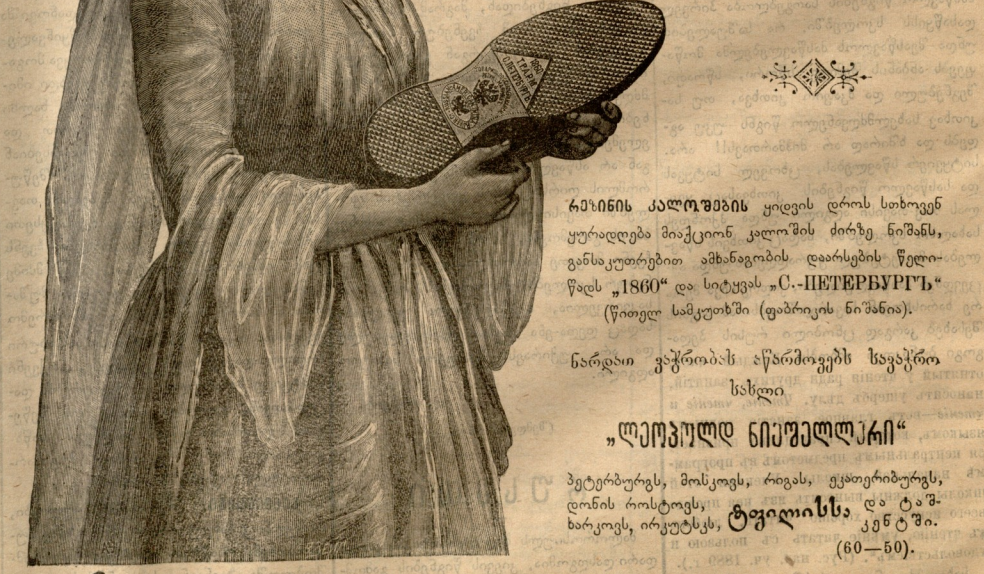 რეზინის კალოშების ყიდვის დროს სთხოვენ
ყურადღება მიაქციონ კალოშის ძირზე ნიშანს,
განსაკუთრებით ამხანაგობის დაარსების წელი-
წადს „1860“ და სიტყვას „С.-ПЕТЕРБУРГЪ“
(წითელ სამკუთხში (ფაბრიკის ნიშანია).
ნარდათ ვაჭრობას აწარმოებს სავაჭრო
სახლი
„ლეოპოლდ ნიეშელლერი“
პეტერბურგს, მოსკოვს, რიგას, ეკათერიბურგს,
დონის როსტოვს, ტფილისსა და ტაშ-
ხარკოვს, ირკუტსკს, კენტში.
(60—50).